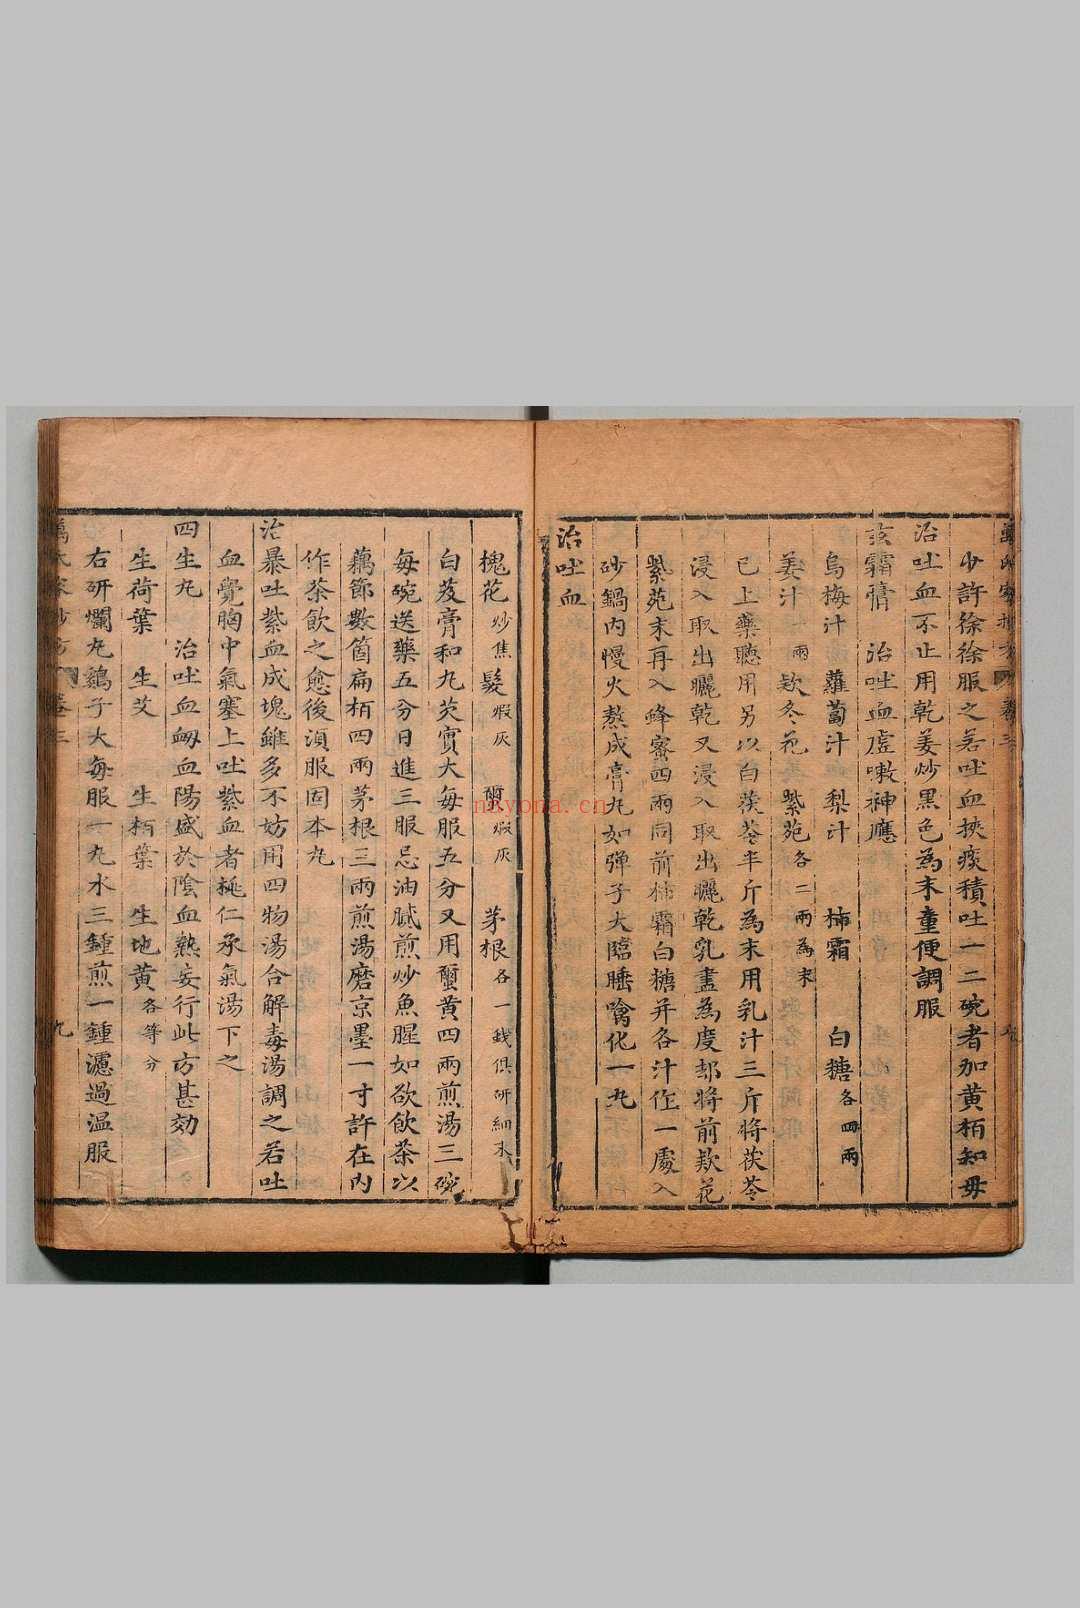 少許徐徐服之若吐血挾痰積吐一二碗者加黄栢知母
治吐血不止用乾姜炒黑色為末童便調服
玄霜膏　治吐血虛嗽神應
烏梅汁　蘿蔔汁　梨汁　柿霜　白糖各四兩
姜汁一兩　欵冬花　紫菀各二兩為末
已上藥聽用另以白茯苓半斤為末用乳汁三斤將茯苓
浸入取出曬乾又浸入取出曬乾乳盡為度却將前欵花
紫菀末再入蜂蜜四兩同前柿霜白糖并各汁作一處入
砂鍋內慢火熬成膏丸如彈子大臨睡噙化一丸
治吐血
槐花炒焦　髮煅灰　煅灰　茅根各一錢俱研細末
白芨膏和丸芡實大每服五分又用蟹黄四兩煎湯三碗
每碗送藥五分日進三服忌油膩煎炒魚腥如欲飲茶以
藕節數箇扁栢四兩茅根三兩煎湯磨京墨一寸許在內
作茶飲之愈後湏服固本丸
治暴吐紫血成塊雖多不妨用四物湯合解毒湯調之若吐
血覺胸中氣塞上吐紫血者桃仁承氣湯下之
四生丸　治吐血衂血陽盛於陰血熱妄行此方甚効
生荷葉　生艾　生栢葉　生地黄各等分
右研爛丸鷄子大每服一丸水三鍾煎一鍾濾過温服
萬氏家抄方　卷三　九
nayona.cn